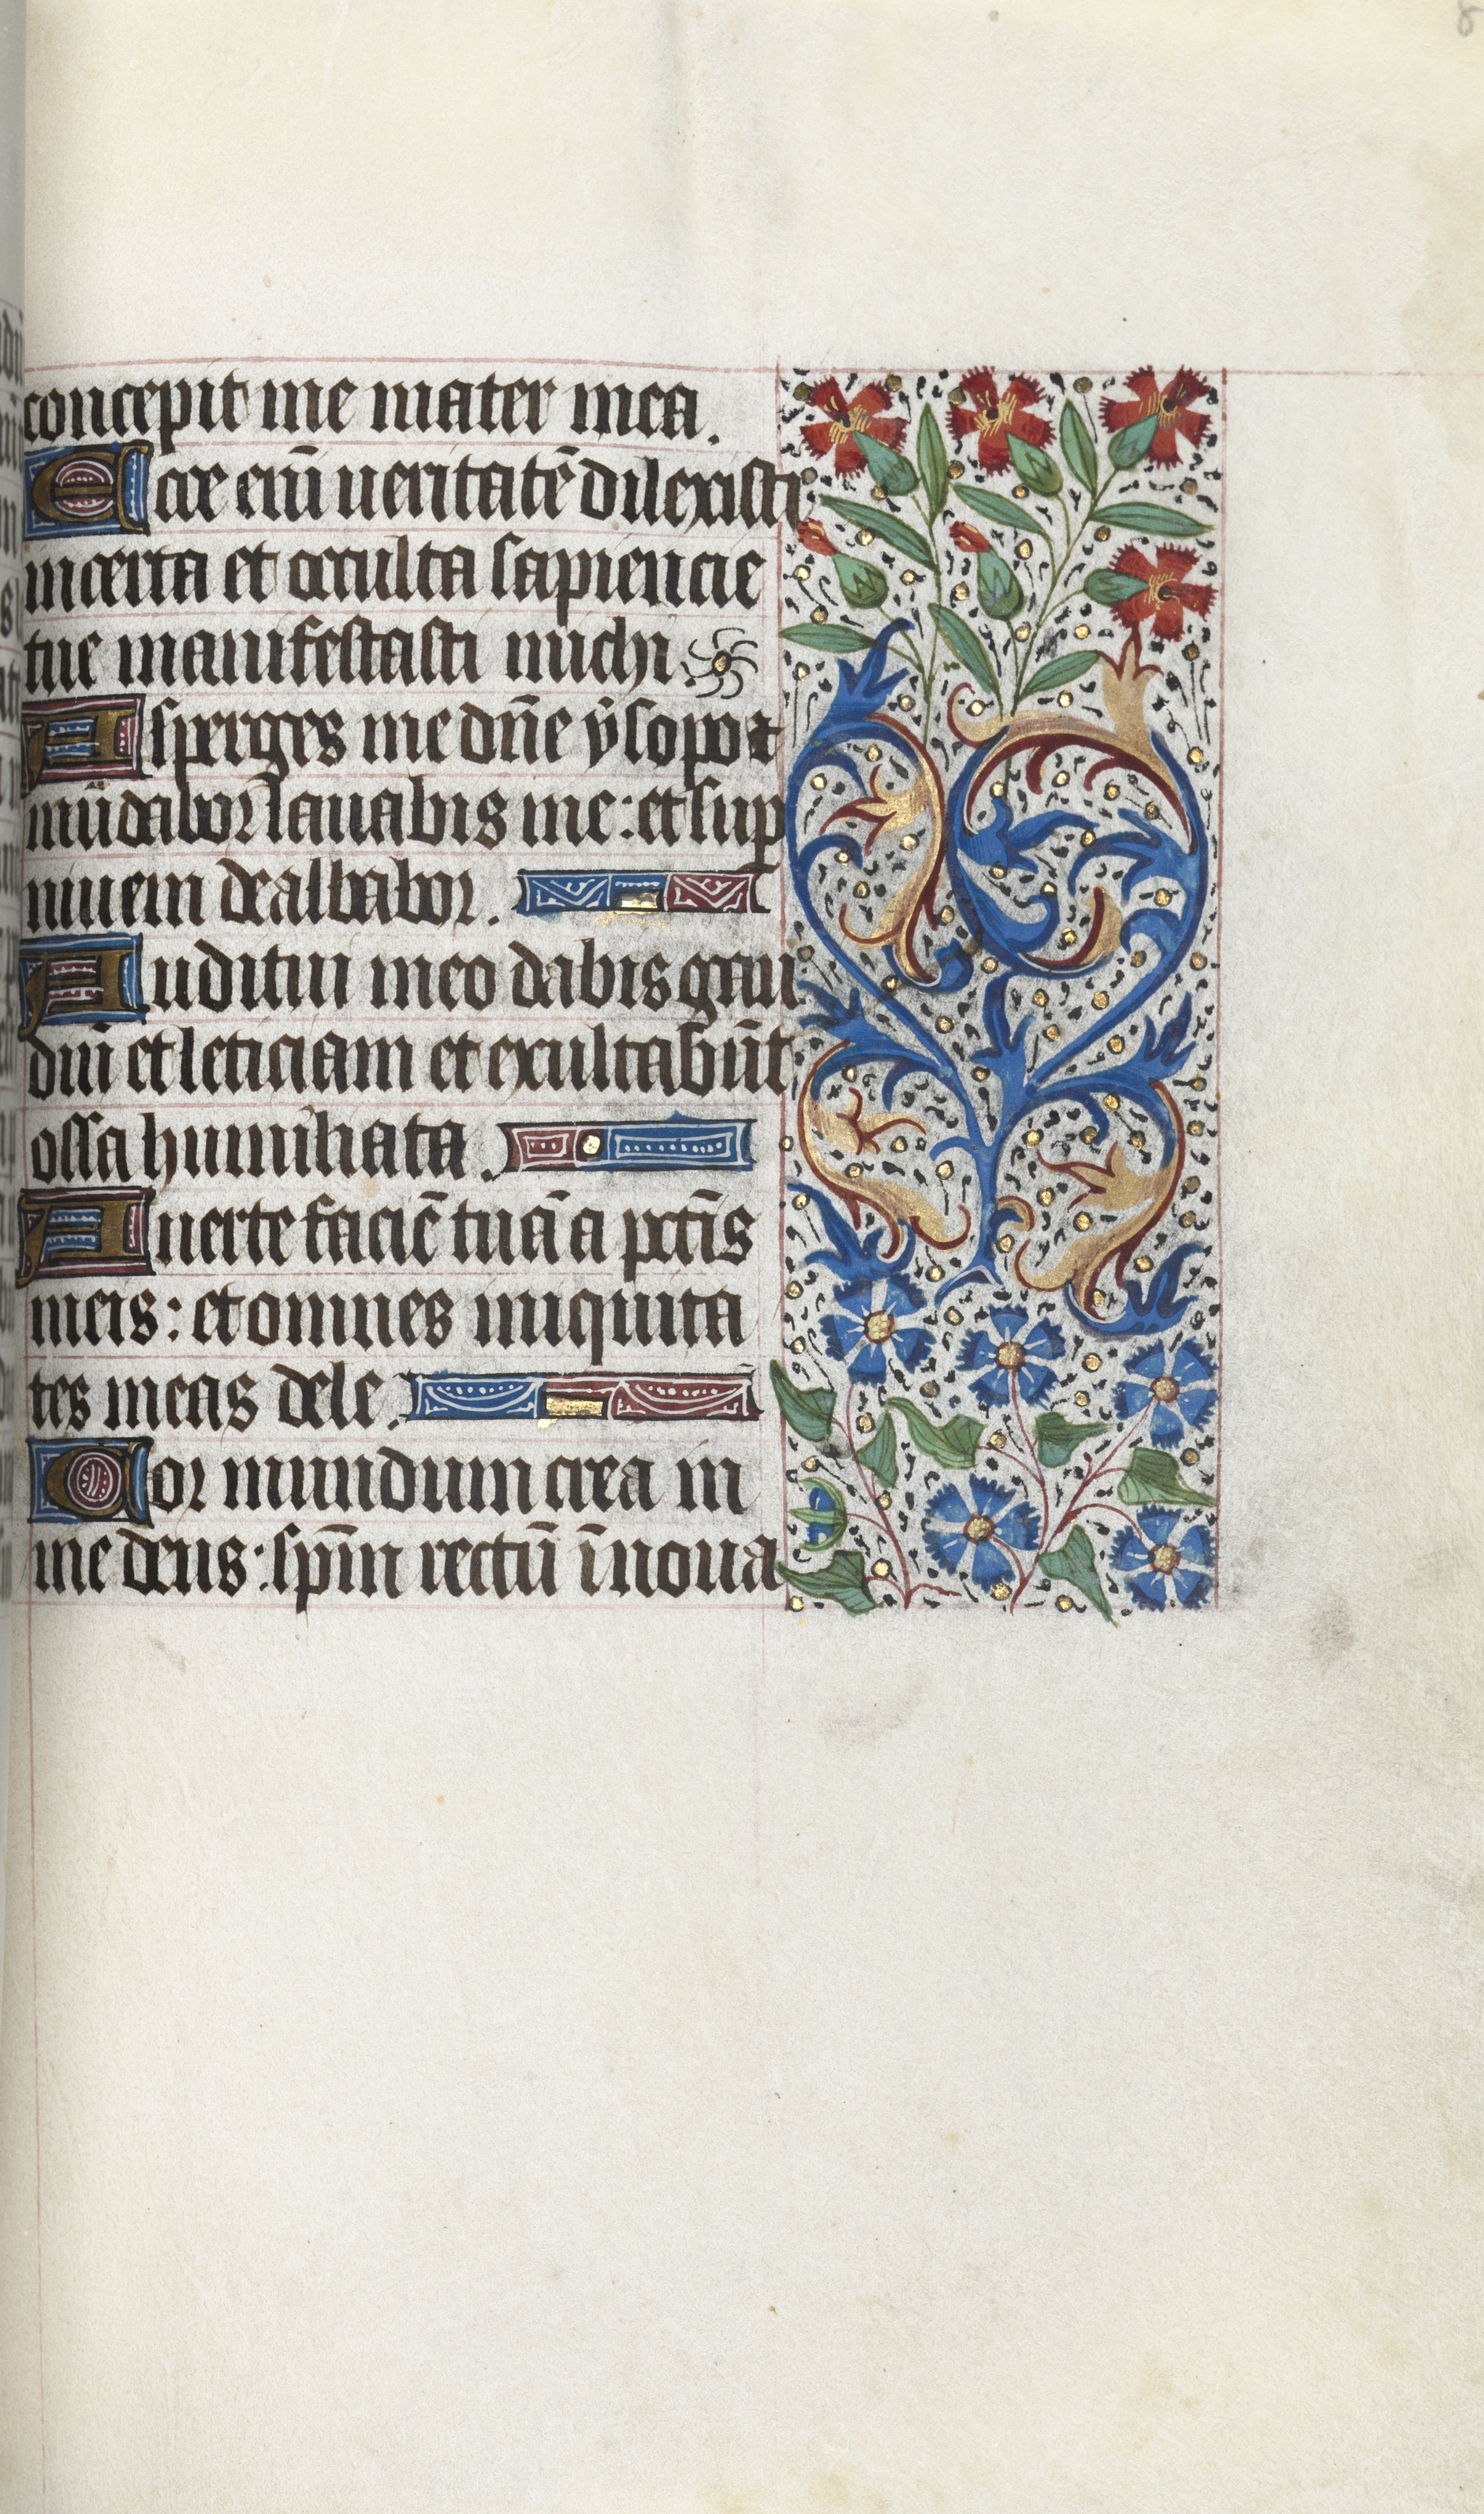 concepit me mater mea.
Ecce eni̅ veritate̅ dilexisti
incerta et occulta sapiencie
tue manifestasti michi.
Asperges me dn̅e ysopo ⁊
mu̅dabor lauabis me: et sup̲
niuem dealbabor.
Auditui meo dabis gau
diu̅ et leticiam et exultabu̅t
ossa humiliata.
Auerte facie̅ tua̅ a pcc̅is
meis: et omnes iniquita
tes meas dele.
Cor mundum crea in
me deus: sp̅m rectu̅ i̅noua